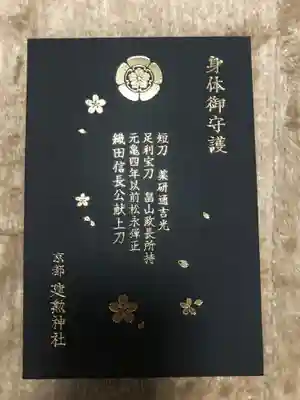 身体御守護
短刀 薬研通吉光
足利宝刀 畠山政長所持
元亀四年以前松永弾正
織田信長公献上刀
京都 建勲神社